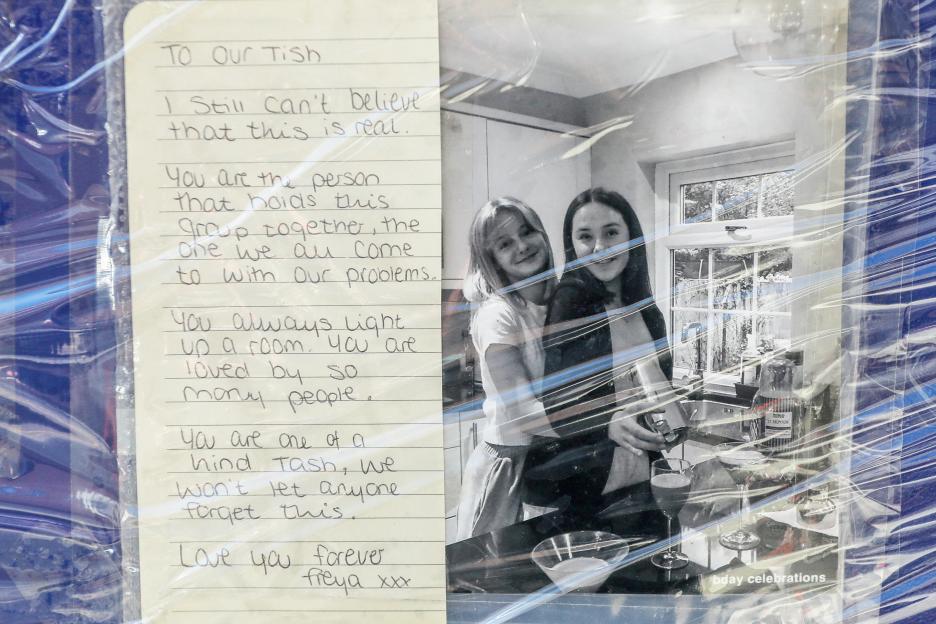 To our Tish
I still can't believe
that this is real.
You are the person
that holds this
group together, the
one we all come
to with our problems.
You always light
up a room. You are
loved by so
many people.
You are one of a
kind Tash, we
won't let anyone
forget this.
Love you forever
Freya xxx
bday celebrations